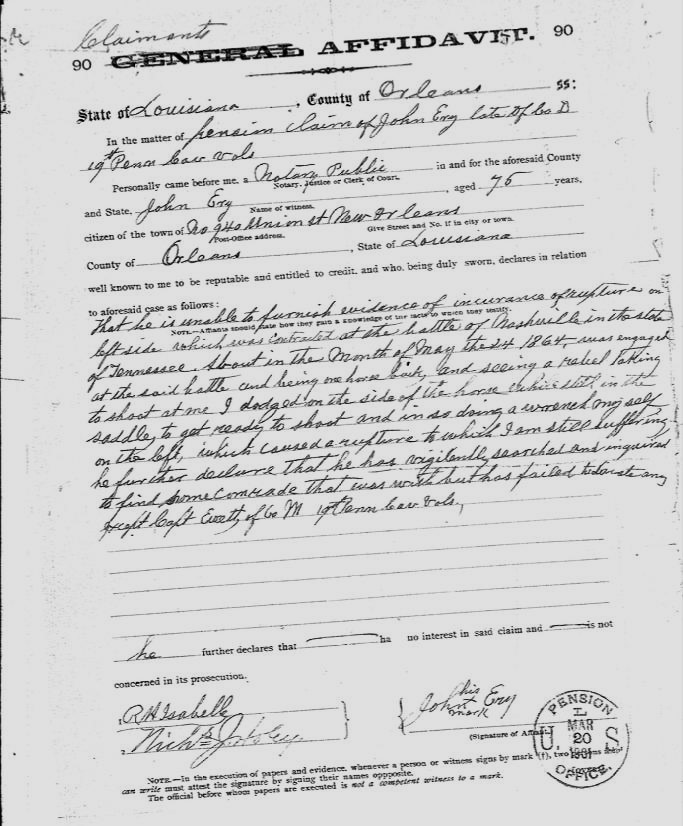 Claimants
90 GENERAL AFFIDAVIT. 90
State of Louisiana, County of Orleans ss:
In the matter of pension claim of John Ery late of Co D
19th Penn Cav Vols
Personally came before me, a Notary Public in and for the aforesaid County
Notary, Justice or Clerk of Court.
and State, John Ery, aged 75 years,
Name of witness.
citizen of the town of No 940 Union st New Orleans
Post-Office address. Give Street and No. if in city or town.
County of Orleans, State of Louisiana
well known to me to be reputable and entitled to credit, and who, being duly sworn, declares in relation
to aforesaid case as follows:
NOTE.—Affiants should state how they gain a knowledge of the facts to which they testify.
That he is unable to furnish evidence of incurance of rupture on
left side which was contracted at the battle of Nashville in the state
of Tennessee. About in the Month of May the 24 1864, was engaged
at the said battle and being on horse back, and seeing a rebel taking
to shoot at me I dodged on the side of the horse while still in the
saddle, to get ready to shoot and in so doing a wrench my self
on the left, which caused a rupture to which I am still suffering.
he further declare that he has vigilently searched and inquired
to find some comrade that was with but has failed to locate any
exept Capt of Co M 19th Penn Cav Vols.
he further declares that ha no interest in said claim and is not
concerned in its prosecution.
1. R H Isabelle
2.
his
John + Ery
mark
(Signature of Affiant.)
PENSION
L
U. S
MAR
20
1901
OFFICE.
NOTE.—In the execution of papers and evidence, whenever a person or witness signs by mark (†), two persons who
can write must attest the signature by signing their names opposite.
The official before whom papers are executed is not a competent witness to a mark.